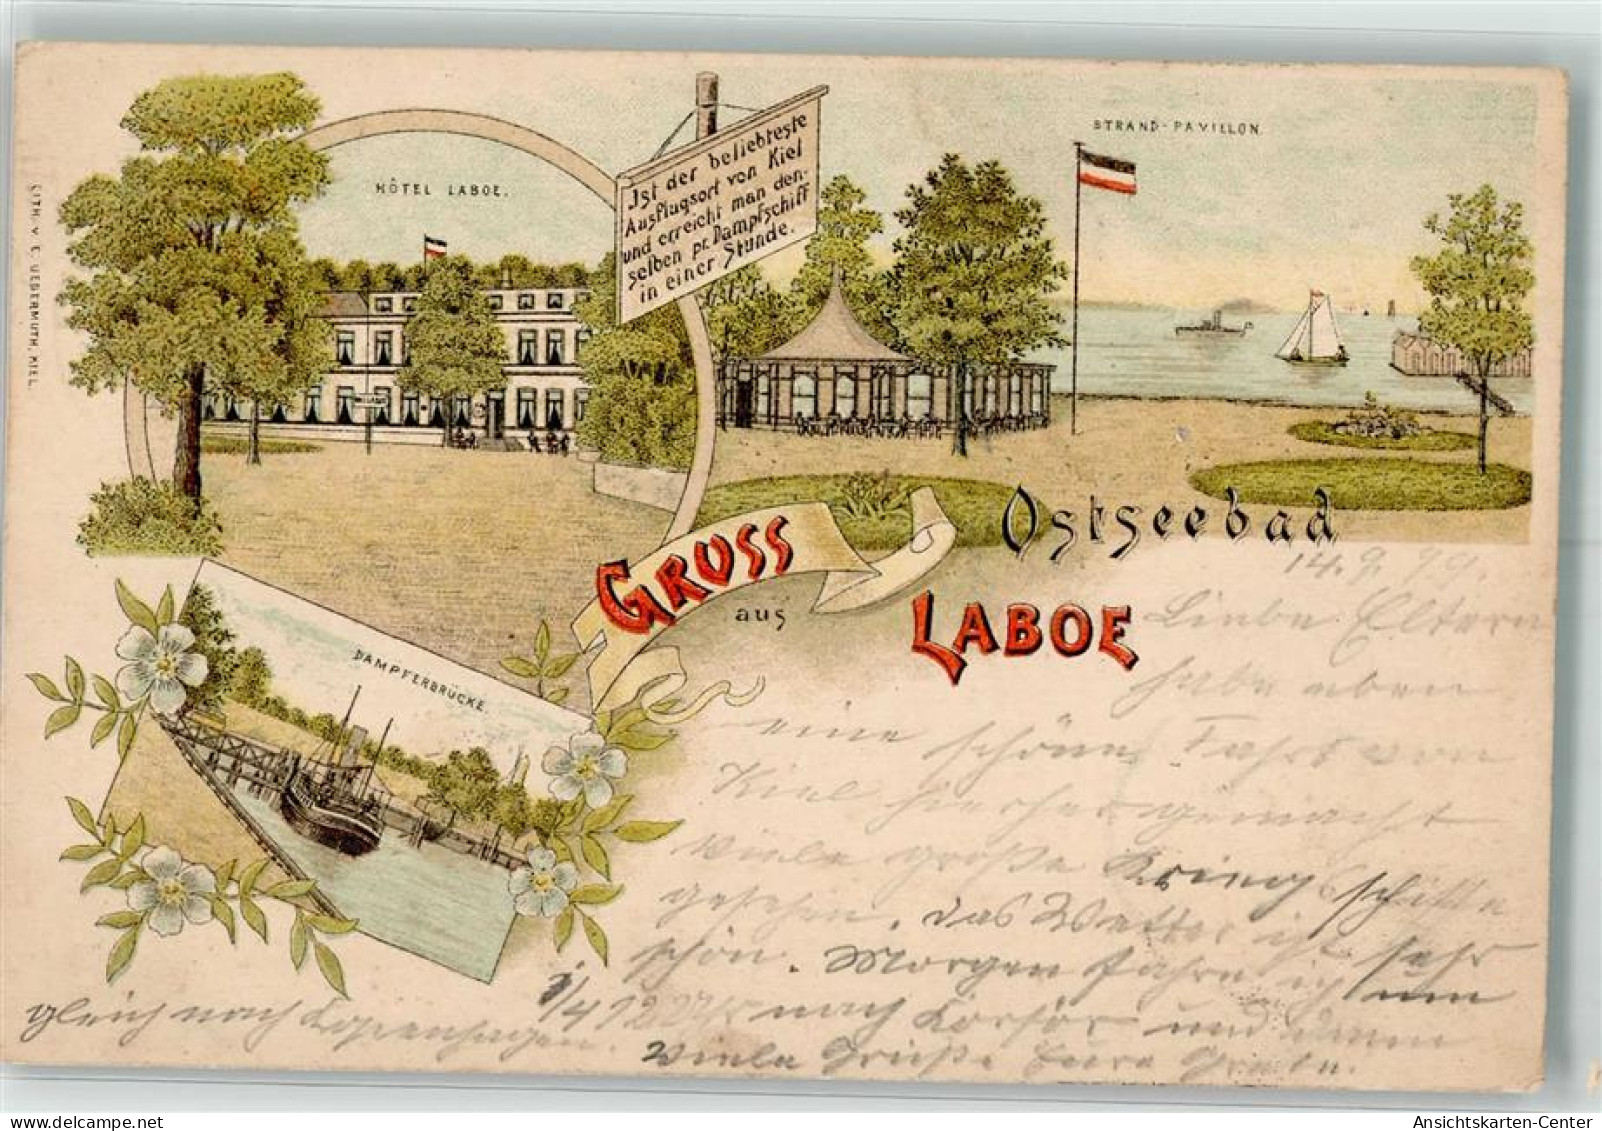 HÔTEL LABOE.
Ist der beliebteste
Ausflugsort von Kiel
und erreicht man den-
selben pr. Dampfschiff
in einer Stunde.
STRAND-PAVILLON.
LITH. v. C. UEBERMUTH, KIEL.
GRUSS
aus
Ostseebad
LABOE
DAMPFERBRÜCKE.
14. 9.
Liebe Eltern
habe eben
eine schöne Fahrt von
Kiel hierher gemacht
viele große Kriegsschiffe
gesehen. Das Wetter ist sehr
schön. Morgen fahre ich um
nach Korsör und dann
gleich nach Kopenhagen.
Viele Grüße Eure
Ansichtskarten-Center